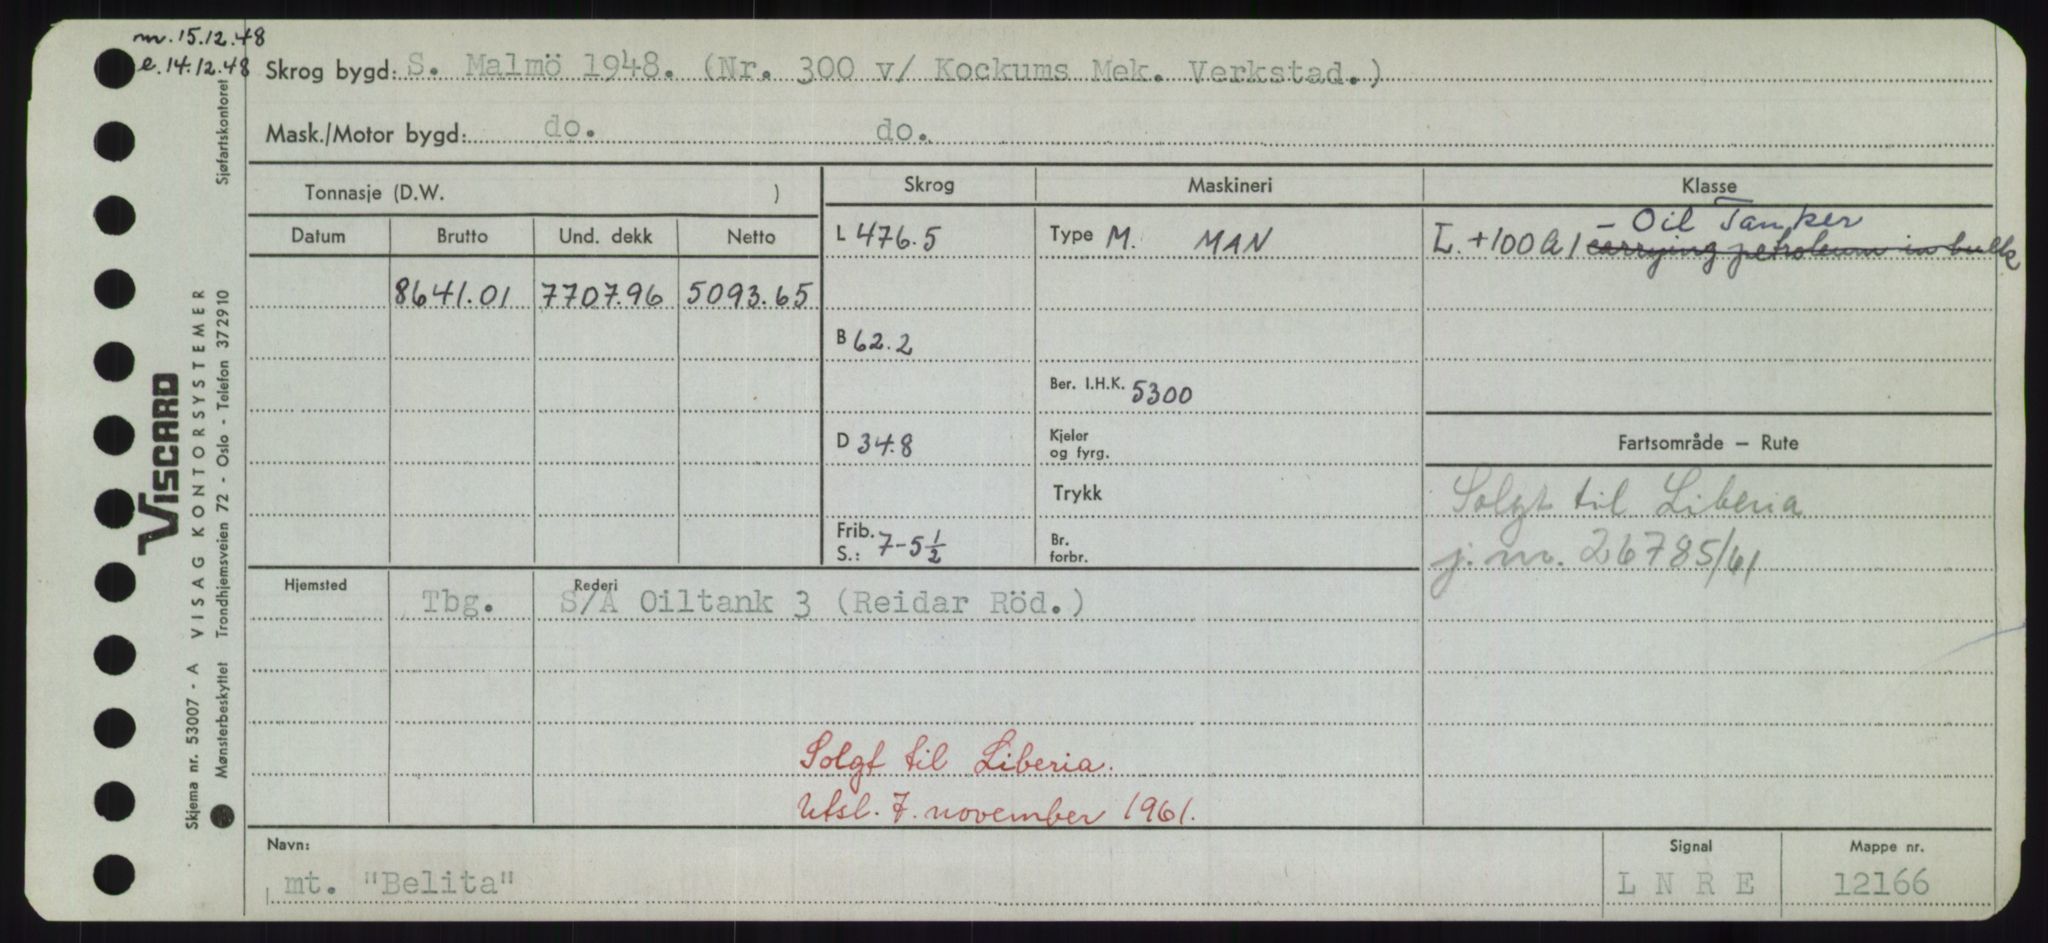 m. 15.12.48
e. 14.12.48
Skrog bygd: S. Malmö 1948. (Nr. 300 v/ Kockums Mek. Verkstad.)
Mask./Motor bygd: do. do.
Tonnasje (D.W. )
Skrog Maskineri Klasse
Datum Brutto Und. dekk Netto
8641.01 7707.96 5093.65
L 476.5
B 62.2
D 34.8
Frib. S.: 7-5 1/2
Type M. MAN
Ber. I.H.K. 5300
Kjeler og fyrg.
Trykk
Br. forbr.
- Oil Tanker
L. +100 A 1 carrying petroleum in bulk
Fartsområde – Rute
Solgt til Liberia
j. nr. 26785/61
Hjemsted Rederi
Tbg. S/A Oiltank 3 (Reidar Röd.)
Solgt til Liberia.
Utsl. 7. november 1961.
Navn: Signal Mappe nr.
mt. "Belita" L N R E 12166
Sjøfartskontoret
VISCARD
VISAG KONTORSYSTEMER
Trondhjemsveien 72 - Oslo - Telefon 372910
Skjema nr. 53007 - A
Mønsterbeskyttet